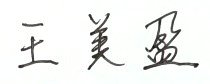 王美盈